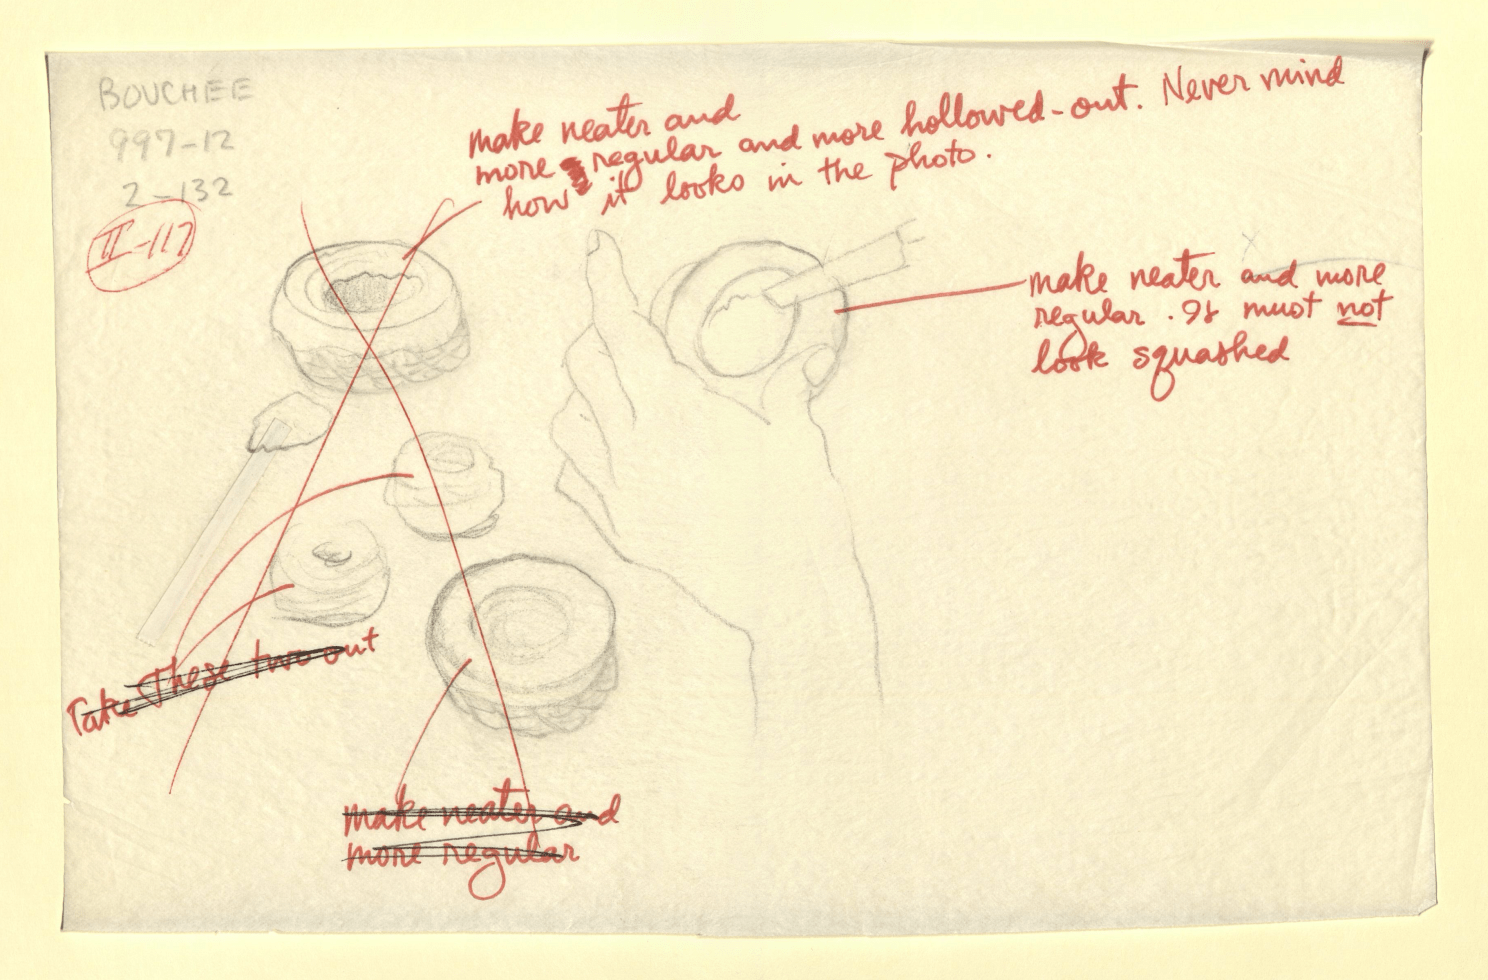 BOUCHEE
997-12
2-132
II-117
make neater and
more regular and more hollowed-out. Never mind
how it looks in the photo.
make neater and more
regular. It must not
look squashed
Take these two out
make neater and
more regular